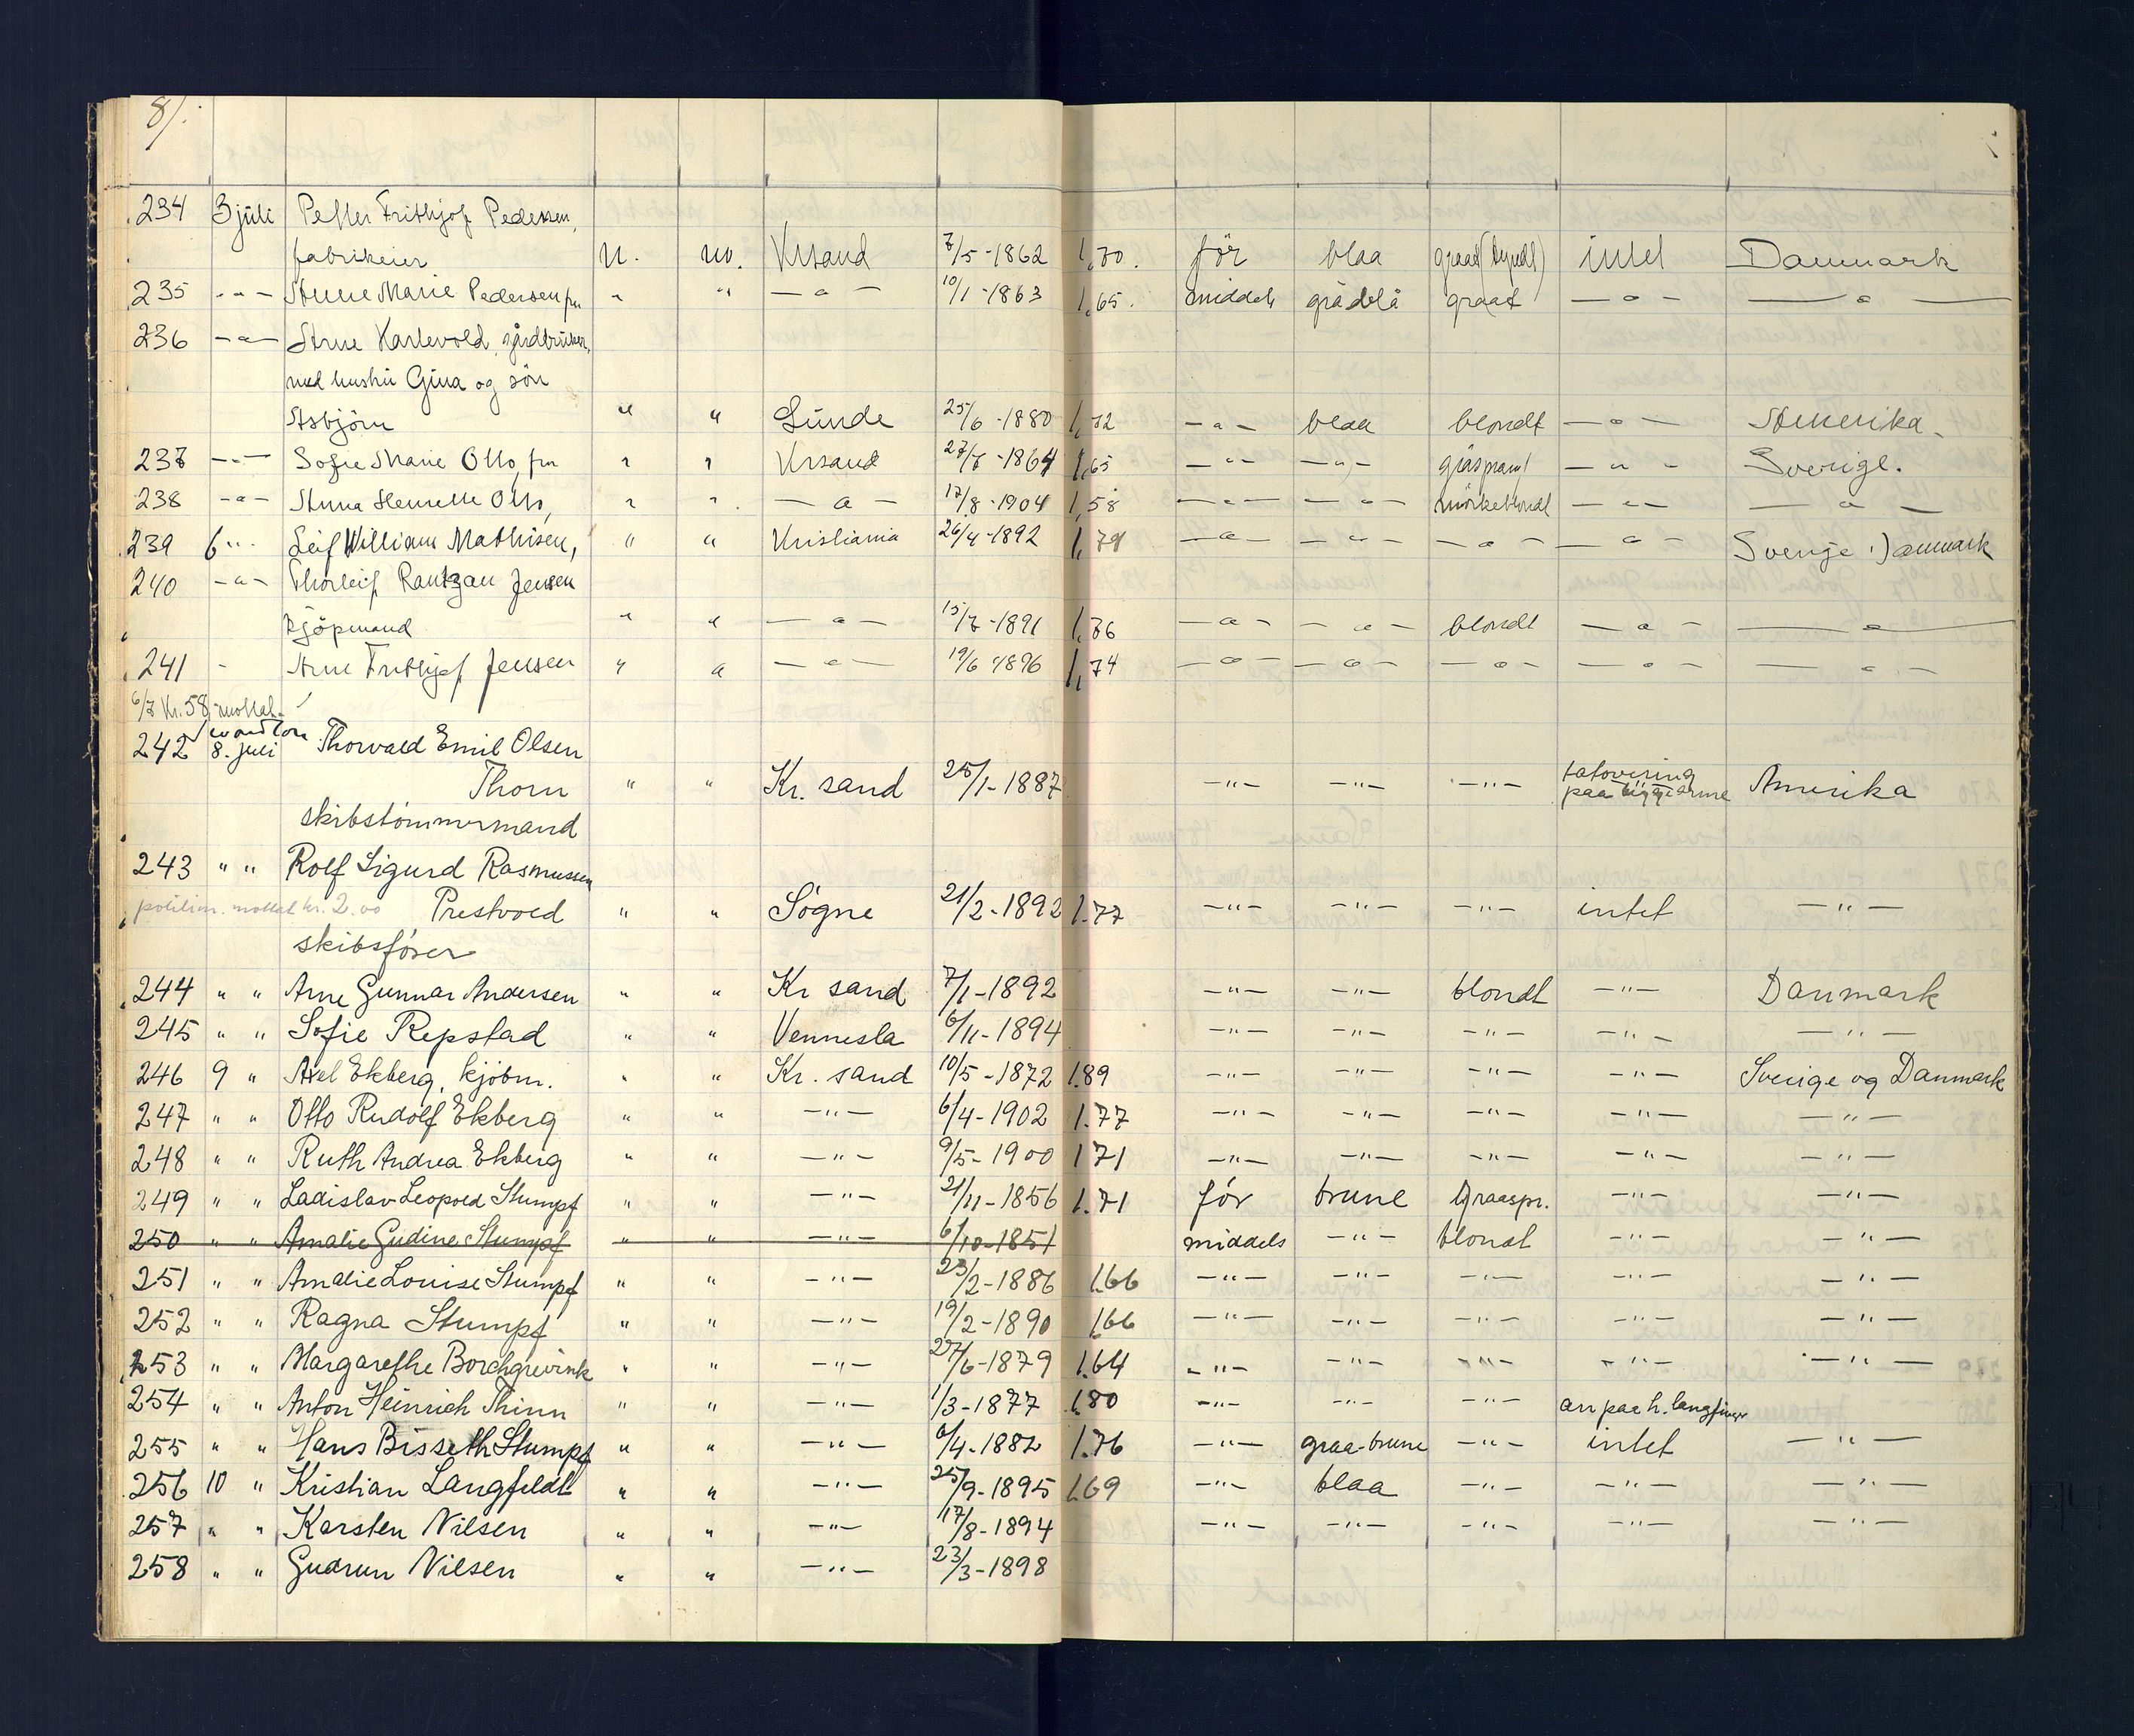 8/.
234 3 juli Petter Frithjof Pedersen,
fabrikeier n. no. Krsand 7/5-1862 1,70. för blaa graat (tyndt) intet Danmark
235 -"- Anne Marie Pedersen fru " " -"- 10/1-1863 1,65. middels grådblå graat -"- -"-
236 -"- Arne Kartevold, gårdbruker,
med hustru Gina og sön
Asbjörn " " Sunde 25/6-1880 1,72 -"- blaa blondt -"- Amerika.
237 -"- Sofie Marie Otto, fru " " Krsand 27/7-1864 1,65 -"- -"- gråsprængt -"- Sverige.
238 -"- Anna Henriette Otto, " " -"- 17/8-1904 1,58 -"- -"- mörkeblondt -"- -"-
239 6 " Leif William Mathisen, " " Kristiania 26/4-1892 1,79 -"- -"- -"- -"- Sverige Danmark
240 -"- Thorleif Rantzau Jensen
Kjöpmand " " -"- 15/7-1891 1,76 -"- -"- blondt -"- -"-
241 - Arne Frithjof Jensen " " -"- 19/6-1896 1,74 -"- -"- -"- -"- -"-
6/7 Kr. 58 mottat
242 8. juli Thorvald Emil Olsen
Thorn " " Kr. sand 25/1-1887 -"- -"- -"- tatovering paa begge arme Amerika
skibstömmermand
243 " " Rolf Sigurd Rasmussen
politim. mottat kr. 2.00 Prestvold " " Sögne 21/2-1892 1.77 -"- -"- -"- intet -"-
skibsförer
244 " " Arne Gunnar Andersen " " Kr sand 7/1-1892 -"- -"- blondt -"- Danmark
245 " " Sofie Repstad " " Vennesla 6/11-1894 -"- -"- -"- -"- -"-
246 9 " Axel Ekberg, kjöbm. " " Kr. sand 10/5-1872 1.89 -"- -"- -"- -"- Sverige og Danmark
247 " " Otto Rudolf Ekberg " " -"- 6/4-1902 1.77 -"- -"- -"- -"- -"-
248 " " Ruth Andrea Ekberg " " -"- 9/5-1900 1 71 -"- -"- -"- -"- -"-
249 " " Ladislav Leopold Stumpf " " -"- 21/11-1856 1.71 för brune Graaspr. -"- -"-
250 " " Amalie Gudine Stumpf " " -"- 6/10-1851 middels -"- blondt -"- -"-
251 " " Amalie Louise Stumpf " " -"- 23/2-1886 1.66 -"- -"- -"- -"- -"-
252 " " Ragna Stumpf " " -"- 19/2-1890 1.66 -"- -"- -"- -"- -"-
253 " " Margarethe Borchgrevink " " -"- 27/6-1879 1.64 -"- -"- -"- -"- -"-
254 " " Anton Heinrich Thinn " " -"- 1/3-1877 1.80 -"- -"- -"- arr paa h. langfinger
255 " " Hans Bisseth Stumpf " " -"- 6/4-1882 1.76 -"- graa-brune -"- intet -"-
256 10 " Kristian Langfeldt " " -"- 25/9-1895 1.69 -"- blaa -"- -"- -"-
257 " " Karsten Nilsen " " -"- 17/8-1894 -"- -"- -"- -"- -"-
258 " " Gudrun Nilsen " " -"- 23/3-1898